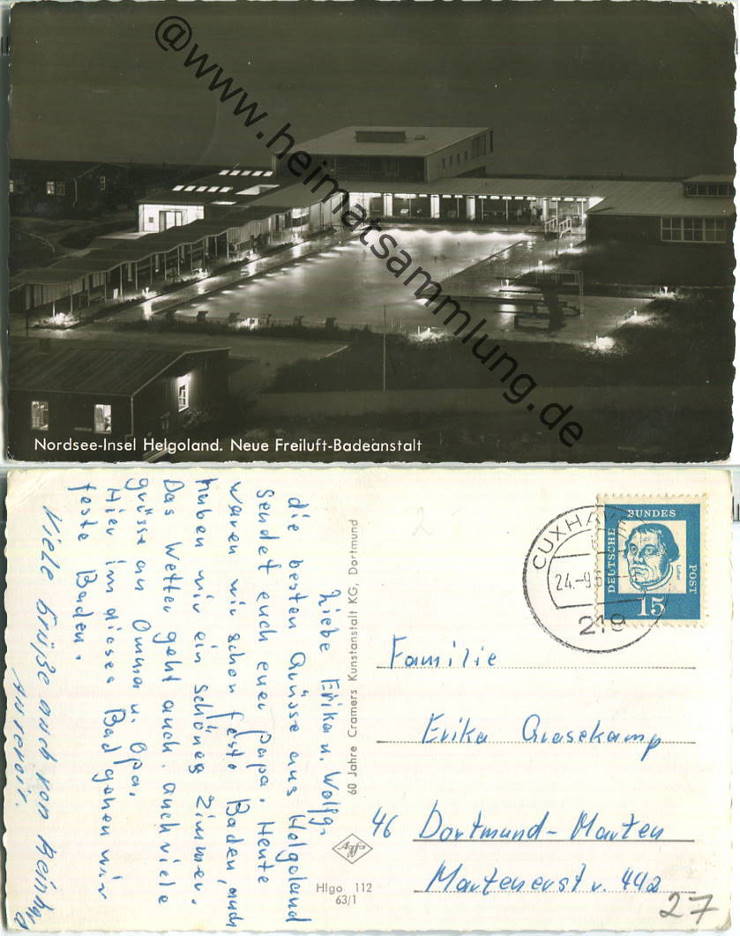 @www.heimatsammlung.de
Nordsee-Insel Helgoland. Neue Freiluft-Badeanstalt
Liebe Erika u. Wolfg.
die besten Grüsse aus Helgoland
Sendet euch euer Papa. Heute
waren wir schon feste Baden, auch
haben wir ein schönes Zimmer.
Das Wetter geht auch. auch viele
grüsse an Omma u. Opa.
Hier in dieses Bad gehen wir
feste Baden.
Viele Grüße auch von
Aurevoir.
60 Jahre Cramers Kunstanstalt KG, Dortmund
Agfa
Hlgo 112
63/1
CUXHAVEN
24.-9.6
219
DEUTSCHE
BUNDES
POST
Luther
15
Familie
Erika Grasekamp
46 Dortmund-Marten
Martenerstr. 442
27